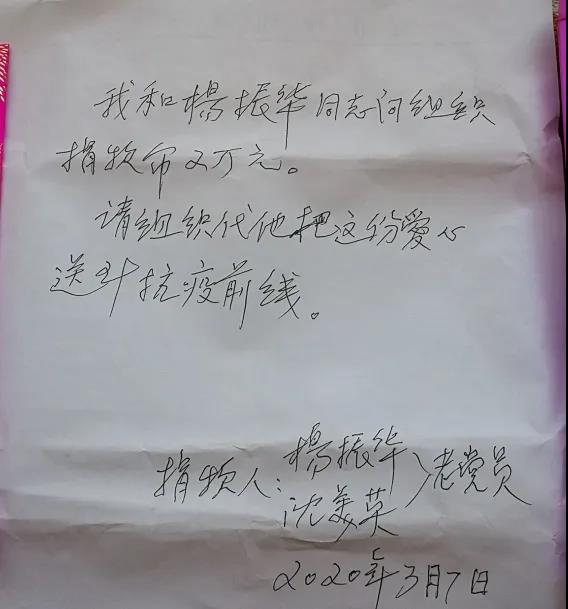 我和楊振华同志向组织
捐款 2万元。
请组织代他把这份爱心
送到抗疫前线。
捐款人：楊振华
沈美英
老党员
2020年3月7日